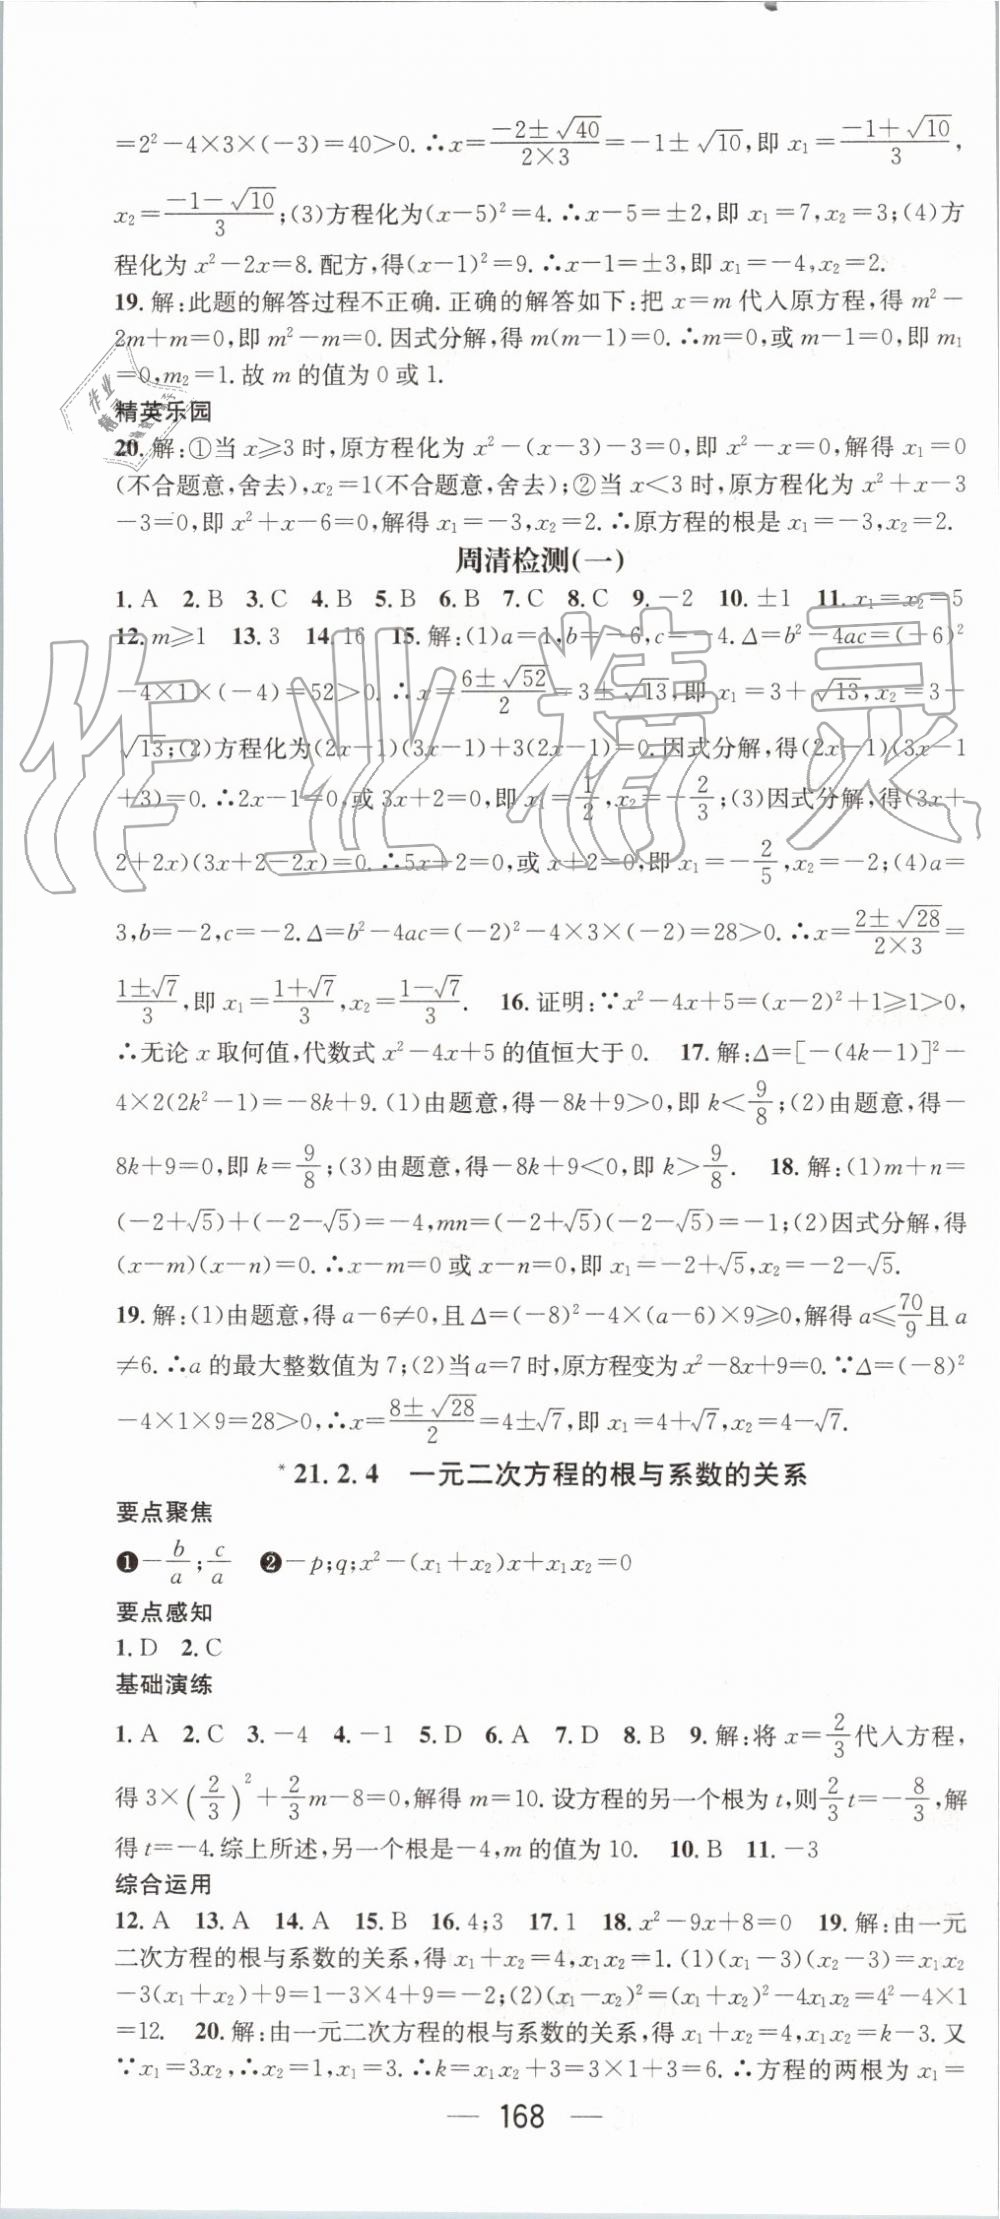 =2²-4×3×(-3)=40>0.∴x=(-2±√40)/(2×3)=-1±√10,即 x₁=(-1+√10)/3,
x₂=(-1-√10)/3;(3)方程化为(x-5)²=4.∴x-5=±2,即 x₁=7,x₂=3;(4)方
程化为 x²-2x=8.配方,得(x-1)²=9.∴x-1=±3,即 x₁=-4,x₂=2.
19.解:此题的解答过程不正确.正确的解答如下:把 x=m 代入原方程,得 m²-
2m+m=0,即 m²-m=0.因式分解,得 m(m-1)=0.∴m=0,或 m-1=0,即 m₁
=0,m₂=1.故 m 的值为 0 或 1.
精英乐园
20.解:①当 x≥3 时,原方程化为 x²-(x-3)-3=0,即 x²-x=0,解得 x₁=0
(不合题意,舍去),x₂=1(不合题意,舍去);②当 x<3 时,原方程化为 x²+x-3
-3=0,即 x²+x-6=0,解得 x₁=-3,x₂=2.∴原方程的根是 x₁=-3,x₂=2.
周清检测(一)
1.A 2.B 3.C 4.B 5.B 6.B 7.C 8.C 9.-2 10.±1 11.x₁=x₂=5
12.m≥1 13.3 14.16 15.解:(1)a=1,b=-6,c=-4.Δ=b²-4ac=(-6)²
-4×1×(-4)=52>0.∴x=(6±√52)/2=3±√13,即 x₁=3+√13,x₂=3-
√13;(2)方程化为(2x-1)(3x-1)+3(2x-1)=0.因式分解,得(2x-1)(3x-1
+3)=0.∴2x-1=0,或 3x+2=0,即 x₁=1/2,x₂=-2/3;(3)因式分解,得(3x+
2+2x)(3x+2-2x)=0.∴5x+2=0,或 x+2=0,即 x₁=-2/5,x₂=-2;(4)a=
3,b=-2,c=-2.Δ=b²-4ac=(-2)²-4×3×(-2)=28>0.∴x=(2±√28)/(2×3)=
(1±√7)/3,即 x₁=(1+√7)/3,x₂=(1-√7)/3. 16.证明:∵x²-4x+5=(x-2)²+1≥1>0,
∴无论 x 取何值,代数式 x²-4x+5 的值恒大于 0. 17.解:Δ=[-(4k-1)]²-
4×2(2k²-1)=-8k+9.(1)由题意,得-8k+9>0,即 k<9/8;(2)由题意,得-
8k+9=0,即 k=9/8;(3)由题意,得-8k+9<0,即 k>9/8. 18.解:(1)m+n=
(-2+√5)+(-2-√5)=-4,mn=(-2+√5)(-2-√5)=-1;(2)因式分解,得
(x-m)(x-n)=0.∴x-m=0 或 x-n=0,即 x₁=-2+√5,x₂=-2-√5.
19.解:(1)由题意,得 a-6≠0,且 Δ=(-8)²-4×(a-6)×9≥0,解得 a≤70/9且 a
≠6.∴a 的最大整数值为 7;(2)当 a=7 时,原方程变为 x²-8x+9=0.∵Δ=(-8)²
-4×1×9=28>0,∴x=(8±√28)/2=4±√7,即 x₁=4+√7,x₂=4-√7.
*21.2.4 一元二次方程的根与系数的关系
要点聚焦
❶-b/a;c/a ❷-p;q;x²-(x₁+x₂)x+x₁x₂=0
要点感知
1.D 2.C
基础演练
1.A 2.C 3.-4 4.-1 5.D 6.A 7.D 8.B 9.解:将 x=2/3代入方程,
得 3×(2/3)²+2/3m-8=0,解得 m=10.设方程的另一个根为 t,则2/3t=-8/3,解
得 t=-4.综上所述,另一个根是-4,m 的值为 10. 10.B 11.-3
综合运用
12.A 13.A 14.A 15.B 16.4;3 17.1 18.x²-9x+8=0 19.解:由一元
二次方程的根与系数的关系,得 x₁+x₂=4,x₁x₂=1.(1)(x₁-3)(x₂-3)=x₁x₂
-3(x₁+x₂)+9=1-3×4+9=-2;(2)(x₁-x₂)²=(x₁+x₂)²-4x₁x₂=4²-4×1
=12. 20.解:由一元二次方程的根与系数的关系,得 x₁+x₂=4,x₁x₂=k-3.又
∵x₁=3x₂,∴x₂=1,x₁=3.∴k=x₁x₂+3=3×1+3=6.∴方程的两根为 x₁=
— 168 —
作业精灵